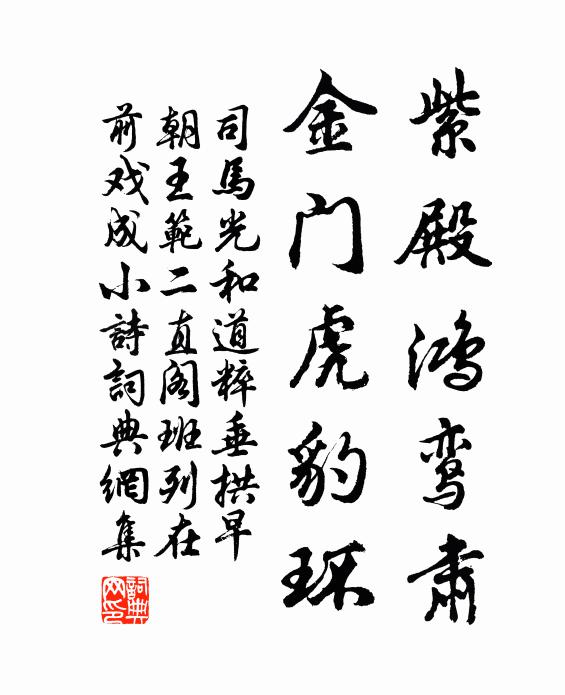 紫殿鸿鸾肃
金门虎豹环
司馬光和道粹垂拱早
朝王範二直阁班列在
前戏成小詩詞典網集
詞典网印